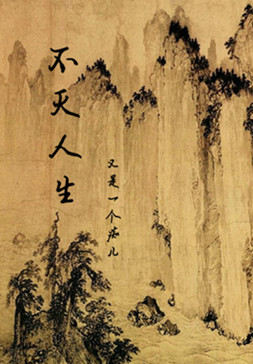 不灭人生
又是一个疯儿